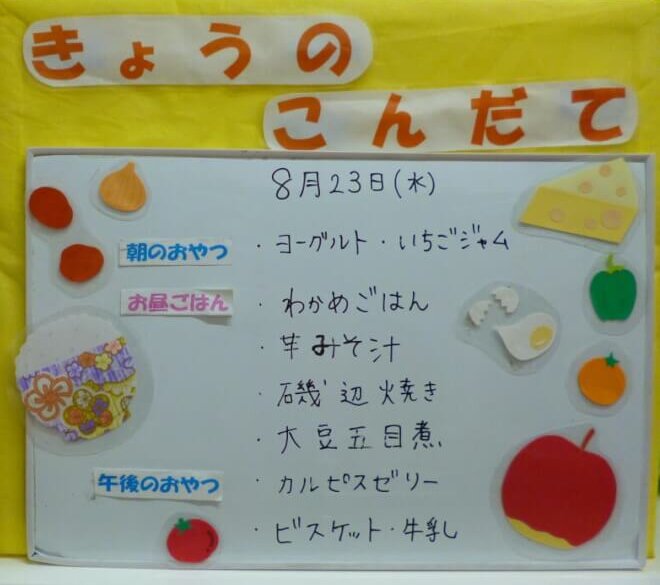 きょうの
こんだて
8月23日(水)
朝のおやつ ・ヨーグルト・いちごジャム
お昼ごはん ・わかめごはん
・芋みそ汁
・磯辺焼き
・大豆五目煮
午後のおやつ ・カルピスゼリー
・ビスケット・牛乳